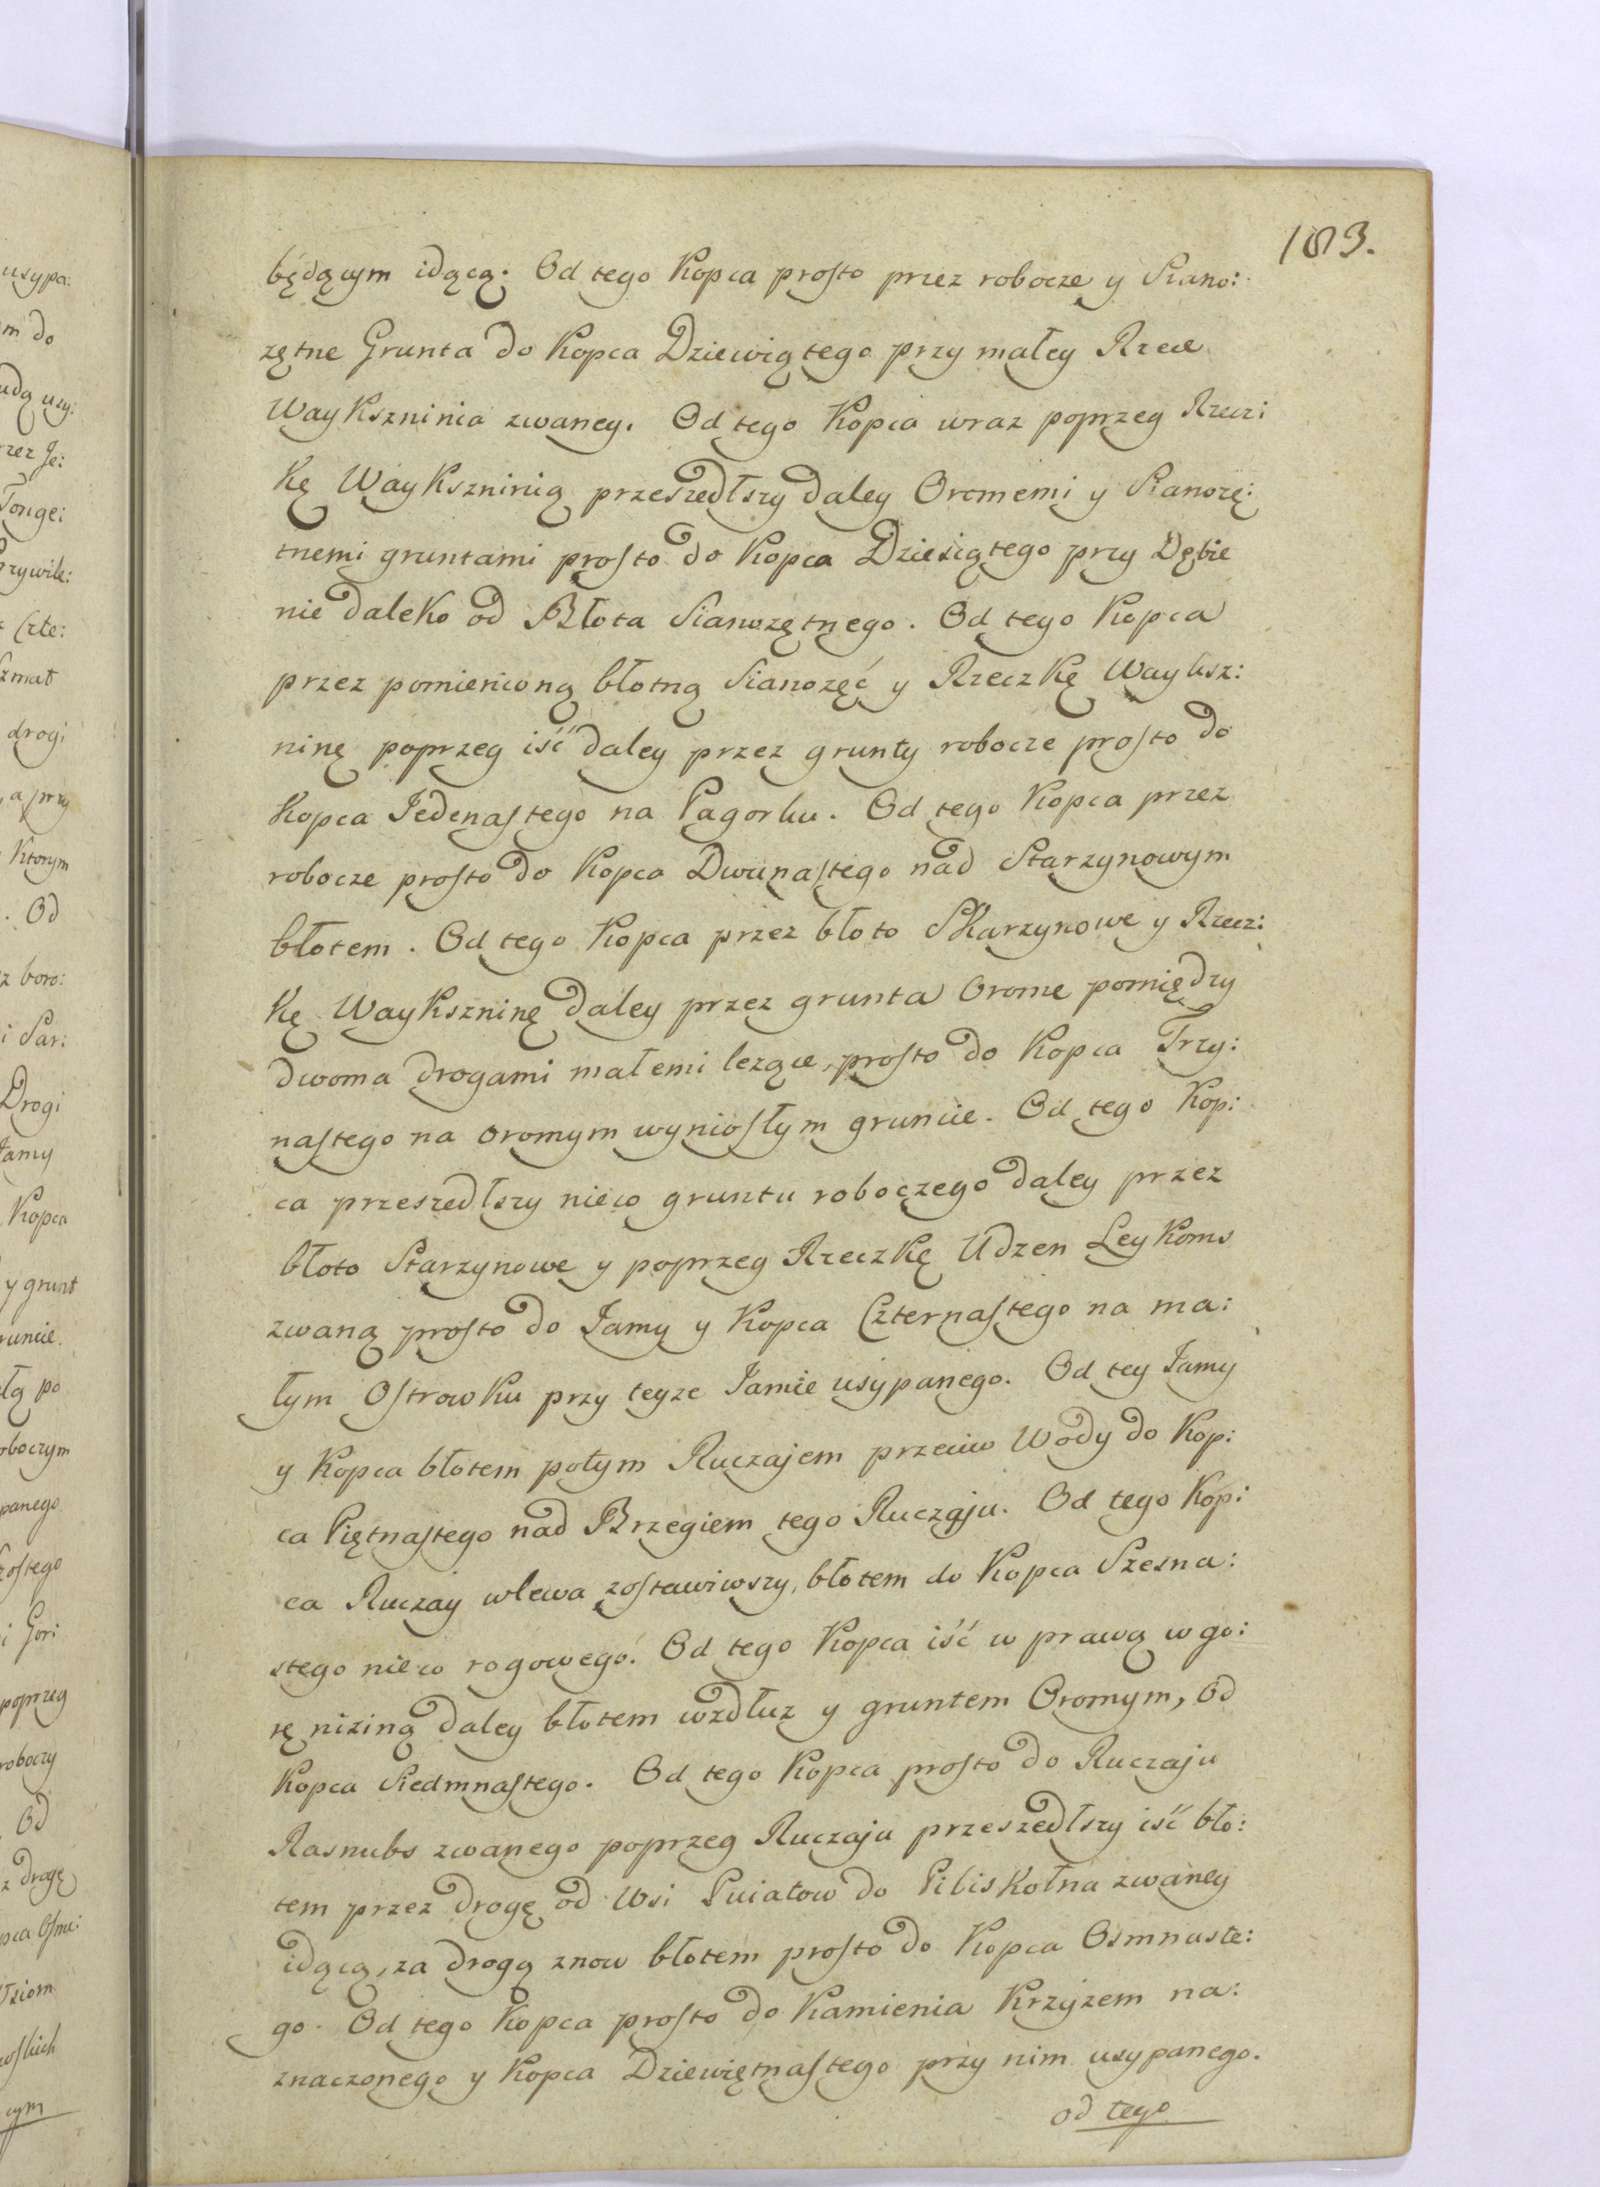 183.
będącym idącą. Od tego Kopca prosto przez robocze y Siano:
zętne Grunta do Kopca Dziewiątego przy małey Rzece
Waykszninia zwaney. Od tego Kopca wraz poprzeg Rzecz:
kę Waykszninią przeszedłszy daley Oromemi y Sianozę:
tnemi gruntami prosto do Kopca Dziesiątego przy Dębie
nie daleko od Błota Sianozętnego. Od tego Kopca
przez pomienioną błotną Sianozęć y Rzeczkę Wayksz:
ninę poprzeg iść daley przez grunty robocze prosto do
Kopca Jedenastego na Pagorku. Od tego Kopca przez
robocze prosto do Kopca Dwunastego nad Starzynowym
błotem. Od tego Kopca przez błoto Skarzynowe y Rzecz:
kę Wayksz­ninę daley przez grunta Orome pomiędzy
dwoma drogami małemi lezące, prosto do Kopca Trzy:
nastego na oromym wyniosłym gruncie. Od tego Kop:
ca przeszedłszy nieco gruntu roboczego daley przez
błoto Starzynowe y poprzeg Rzeczkę Udzen Leykoms
zwaną prosto do Jamy y Kopca Czternastego na ma:
łym Ostrowku przy teyze Jamie usypanego. Od tey Jamy
y Kopca błotem połym Ruczajem przeciw Wody do Kop:
ca Piętnastego nad Brzegiem tego Ruczaju. Od tego Kop:
ca Ruczay wlewa zostawiwszy, błotem do Kopca Szesna:
stego nieco rogowego. Od tego Kopca iść w prawą w go:
rę niziną daley błotem wzdłuz y gruntem Oromym, Od
Kopca Siedmnastego. Od tego Kopca prosto do Ruczaju
Rasnubs zwanego poprzeg Ruczaju przeszedłszy iść bło:
tem przez drogę od Wsi Puiatow do Piliskołna zwaney
idącą, za drogą znow błotem prosto do Kopca Osmnaste:
go. Od tego Kopca prosto do Kamienia Krzyzem na:
znaczonego y Kopca Dziewiętnastego przy nim usypanego.
od tego